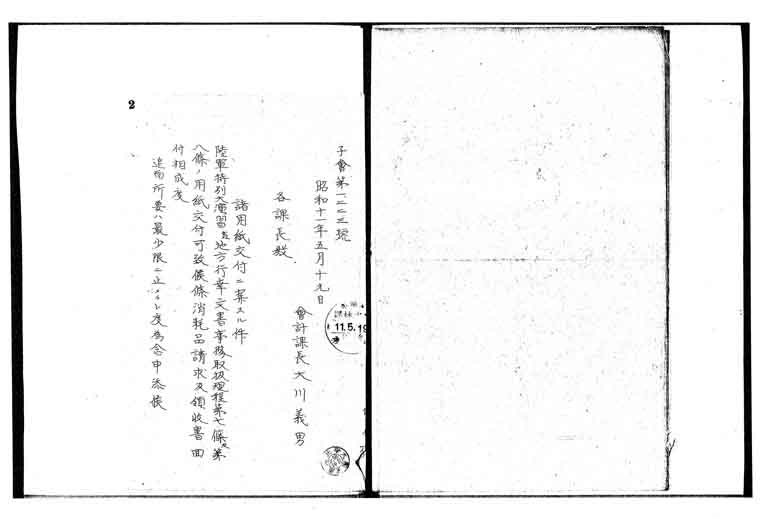 2
子會第一二二三號
昭和十一年五月十九日
各課長殿
會計課長大川義男
諸用紙交付ニ案スル件
陸軍特別大演習並地方行幸文書事務取扱規程第七條及第
八條ノ用紙交付可致候條消耗品請求及領收書回
付相成度
追而所要ハ最少限ニ止メラレ度為念申添候
11.5.19